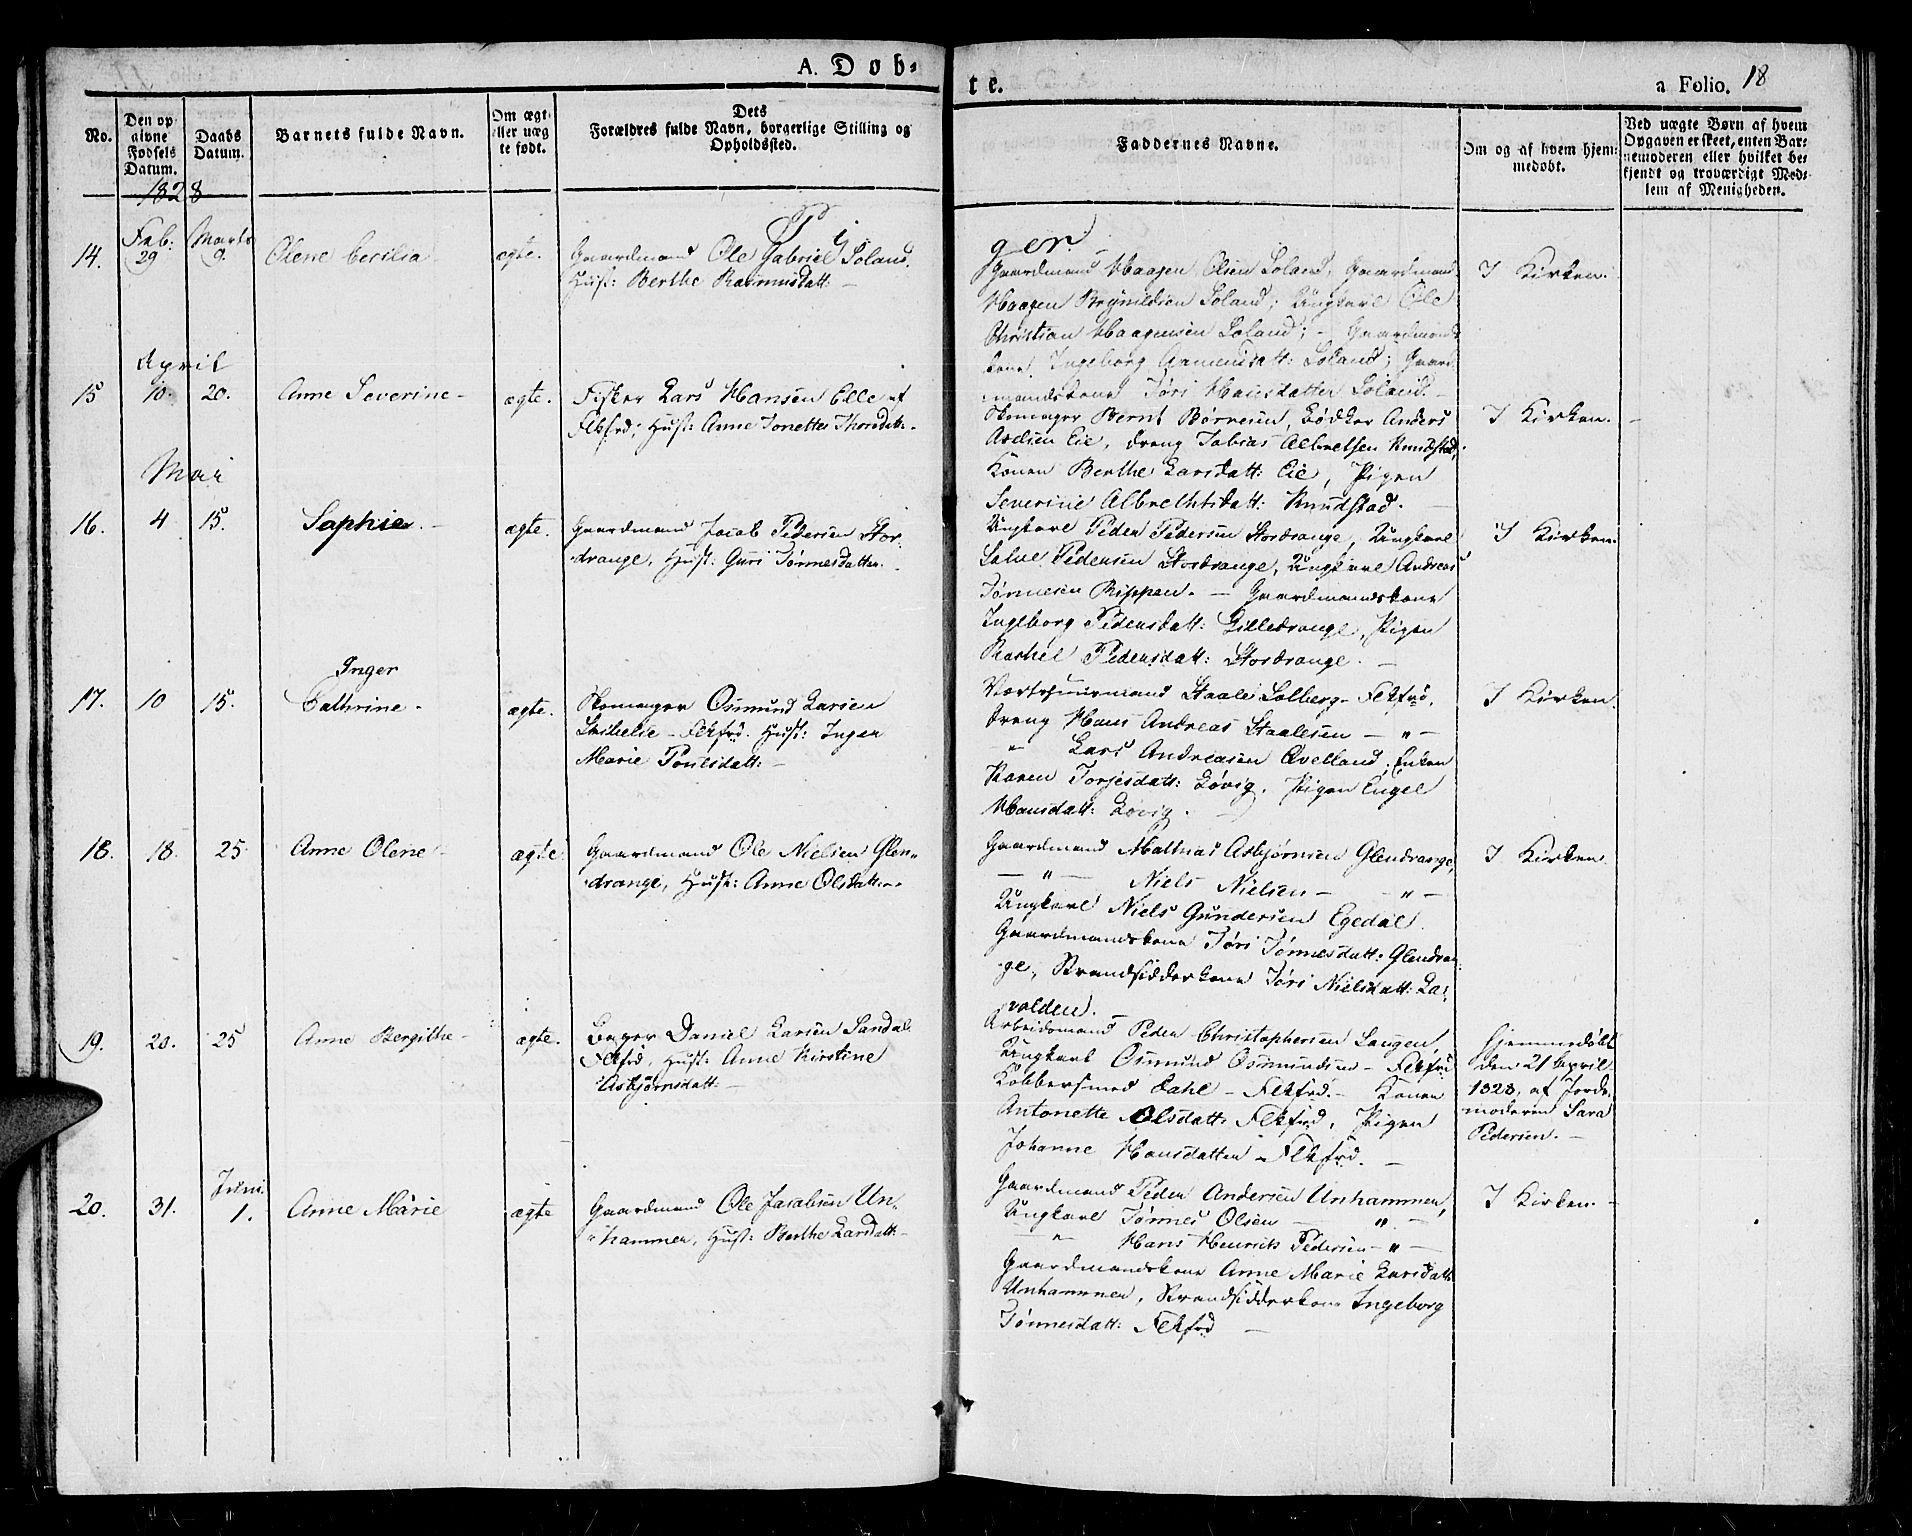 A. Døb=
te.
a Folio. 18
No.
Den op
givne
Fødsels
Datum.
Daabs
Datum.
Barnets fulde Navn.
Om ægt
eller uæg
te født.
Dets
Forældres fulde Navn, borgerlige Stilling og
Opholdssted.
Faddernes Navne.
Om og af hvem hjem=
medøbt.
Ved uægte Børn af hvem
Opgaven er skeet, enten Bar=
nemoderen eller hvilket be=
kjendt og troværdigt Med=
lem af Menigheden.
1828
Pi
ger.
14. Feb: 29 Marts 9. Olene Cecilia ægte. Gaardmand Ole Gabriel Soland.
Hust: Berthe Rasmusdatt: –
Gaardmand Haagen Olsen Soland, Gaardmand
Haagen Brynildsen Soland; Ungkarl Ole
Christian Haagensen Soland; – Gaardmands
kone Ingeborg Aamensdatt: Soland; Gaard
mandskone Jøri Hansdatter Soland. –
I Kirken.
April
15 10. 20. Anne Severine – ægte. Fisker Lars Hansen Elle af
Flkfrd; Hust: Anne Tonette Thorsdatt. –
Skomager Bernt Børresen, Bødker Anders
Asdsen Eie, dreng Tobias Albretsen Rundstad,
Konen Berthe Larsdatt: Eie, Pigen
Severine Albrethtsdatt: Rundstad. –
I Kirken. –
Mai
16. 4 15. Sophie. – ægte. Gaardmand Jacob Pedersen Stor=
drange, Hust: Guri Tørresdatter. –
Ungkarl Peder Pedersen Stordrange, Ungkarl
Salve Pedersen Stordrange, Ungkarl Andreas
Tønnesen Rippen. – Gaardmandskone
Ingeborg Pedersdatt: Lilledrange, Pigen
Rachel Pedersdatt: Stordrange. –
I Kirken.
Inger
17. 10 15. Cathrine – ægte. Skomager Osmund Larsen
Skibelse – Flkfrd. Hust: Inger
Marie Pontsdatt: –
Staale Solberg – Flkfrd.
dreng Hans Andreas Staalesen – „ –
„ Lars Andreasen Qvelland, Enken
Karen Torjesdatt: Løvig, Pigen Engel
Hansdatt: Løvig. –
I Kirken.
18. 18. 25. Anne Olene – ægte. Gaardmand Ole Nielsen Glen=
drange, Hust: Anne Olsdatt. –
Gaardmand Mathias Asbjørnsen Glendrange,
– „ – Niels Nielsen – – „ –
Ungkarl Niels Gundersen Egedal.
Gaardmandskone Jøri Tønnesdatt: Glendran=
ge, Strandsidderkone Jøri Nielsdatt: La=
volden. –
I Kirken.
19. 20. 25 Anne Bergithe – ægte. Bager Daniel Larsen Sandal
Flkfrd, Hust: Anne Kirstine
Asbjørnsdatt –
Arbeidsmand Peder Christophersen Langen,
Ungkarl Osmund Osmundsen – Flkfrd
Kobbersmed Dahl – Flkfrd. – Konen
Antonette Olsdatt: Flkfrd, Pigen
Johanne Hansdatter – Flkfrd. –
Hjemmedøbt
den 21 April
1828, af Jorde=
moderen Sara
Pedersen. –
20. 31. Juni 1. Anne Marie ægte Gaardmand Ole Jacobsen Un=
hammer, Hust: Berthe Larsdatt: –
Gaardmand Peder Andersen Unhammer,
Ungkarl Tønnes Olsen – „ –
„ Hans Henrich Pedersen – „ –
Gaardmandskone Anne Marie Larsdatt
Unhammer, Strandsidderkone Ingeborg
Tønnesdatt: Flkfrd –
I Kirken. –